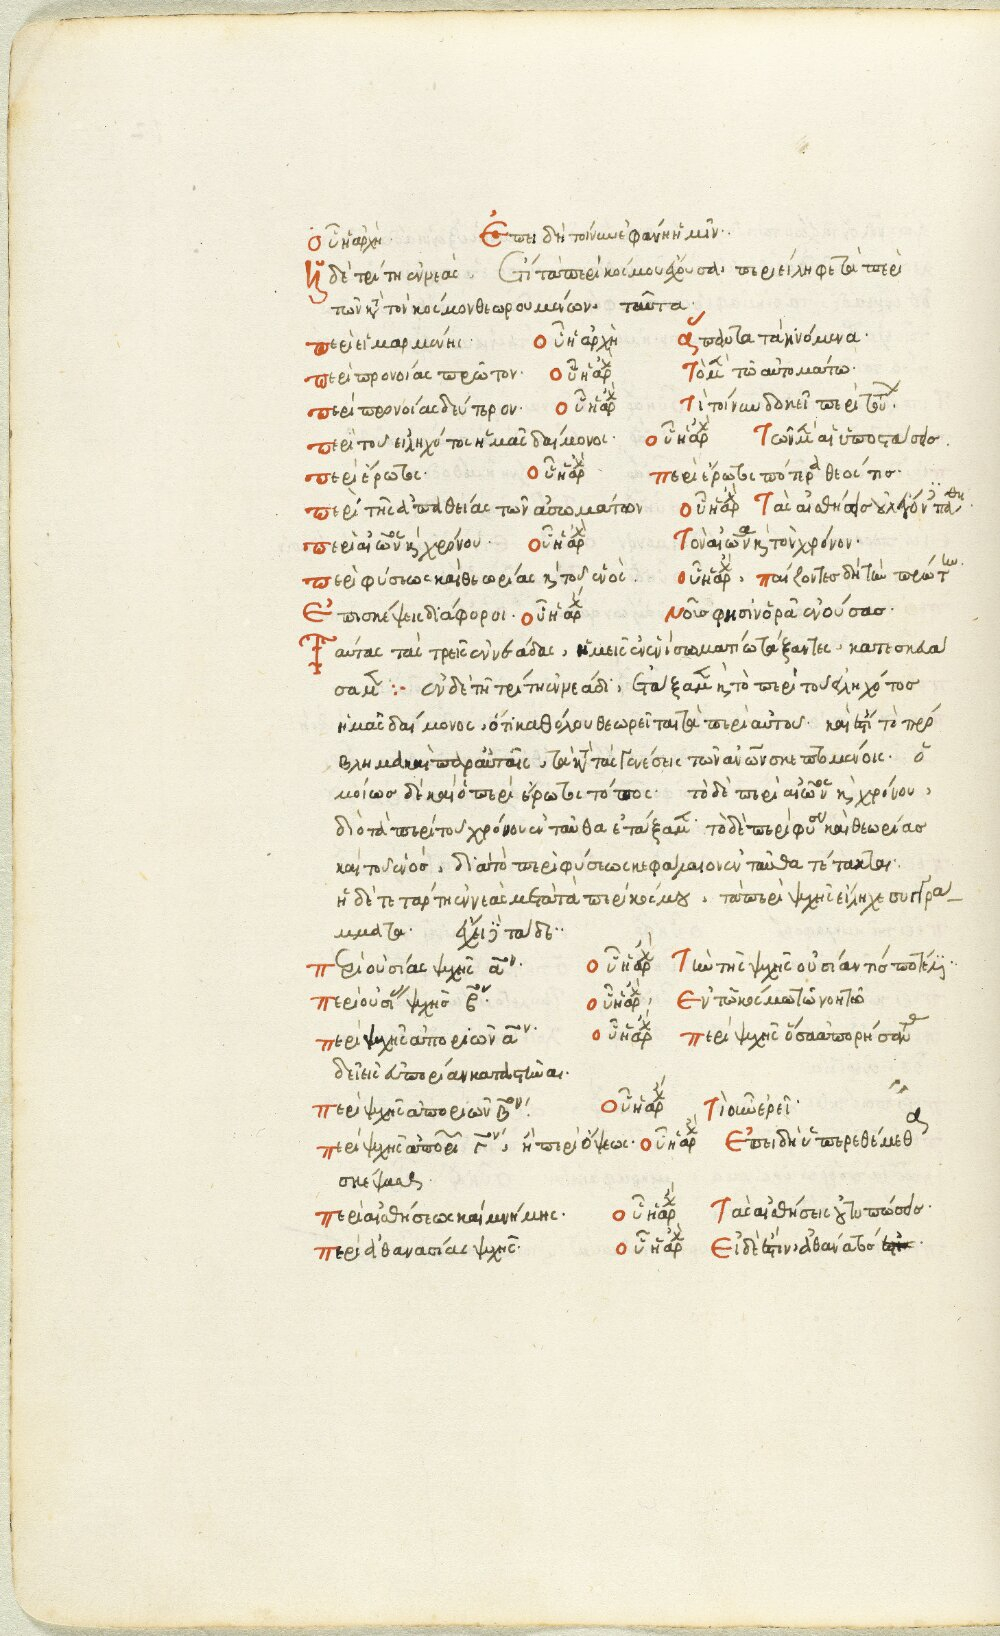 οὗ ἡ ἀρχή· Ἐπειδὴ τοίνυν ἐφάνη ἡμῖν··
Ἡ δὲ τρίτη ἐννεὰς, ἔτι τὰ περὶ κόσμου ἔχουσα, περιείληφε τὰ περὶ
τῶν κατὰ τὸν κόσμον θεωρουμένων· ταῦτα·
περὶ εἱμαρμένης· οὗ ἡ ἀρχὴ ἅπαντα τὰ γινόμενα·
περὶ προνοίας πρῶτον· οὗ ἡ ἀρχ τὸ μὲν τῷ αὐτομάτῳ·
περὶ προνοίας δεύτερον· οὗ ἡ ἀρχ τί τοίνυν δοκεῖ περὶ τούτων·
περὶ τοῦ εἰληχότος ἡμᾶς δαίμονος· οὗ ἡ ἀρχ τῶν μὲν αἱ ὑποστάσεις·
περὶ ἔρωτος· οὗ ἡ ἀρχ περὶ ἔρωτος πότερα θεός τις·
περὶ τῆς ἀπαθείας τῶν ἀσωμάτων οὗ ἡ ἀρχ τὰς αἰσθήσεις οὐ πάθη
περὶ αἰῶνος καὶ χρόνου· οὗ ἡ ἀρχ τὸν αἰῶνα καὶ τὸν χρόνον·
περὶ φύσεως καὶ θεωρίας καὶ τοῦ ἑνός· οὗ ἡ ἀρχ· παίζοντες δὴ τὴν πρώτην
Ἐπισκέψεις διάφοροι· οὗ ἡ ἀρχ νοῦς φησιν ὁρᾷ ἐνούσας·
Ταύτας τὰς τρεῖς ἐννεάδας, ἡμεῖς ἐν ἑνὶ σωματίῳ τάξαντες, κατεσκευά
σαμεν :· ἐν δὲ τῇ τρίτῃ ἐννεάδι, ἐτάξαμεν καὶ τὸ περὶ τοῦ εἰληχότος
ἡμᾶς δαίμονος, ὅτι καθόλου θεωρεῖται τὰ περὶ αὐτοῦ· καὶ ἔστι τὸ πρό
βλημα καὶ παρ' αὐταῖς, τὰ κατὰ τὰς γενέσεις τῶν ἀνθρώπων σκεπτομένοις· ὁ
μοίως δὲ καὶ ὁ περὶ ἔρωτος τόπος· τὸ δὲ περὶ αἰῶνος καὶ χρόνου,
διὸ τὰ περὶ τοῦ χρόνου ἐνταῦθα ἐτάξαμεν· τὸ δὲ περὶ φύσεως καὶ θεωρίας
καὶ τοῦ ἑνός, διὰ τὸ περὶ φύσεως κεφάλαιον ἐνταῦθα τέτακται·
ἡ δὲ τετάρτη ἐννεὰς μετὰ τὰ περὶ κόσμου, τὰ περὶ ψυχῆς εἴληχε συγγρά
μματα· ἔχει δὲ τάδε··
Περὶ οὐσίας ψυχῆς αον· οὗ ἡ ἀρχ τὴν τῆς ψυχῆς οὐσίαν τίς ποτέ ἐστι··
περὶ οὐσίας ψυχῆς βον· οὗ ἡ ἀρχ· Ἐν τῷ κόσμῳ τῷ νοητῷ
περὶ ψυχῆς ἀποριῶν αον· οὗ ἡ ἀρχ περὶ ψυχῆς ὅσα ἀπορήσαντας
δεῖ εἰς ἀπορίαν καταστῆναι·
περὶ ψυχῆς ἀποριῶν βον· οὗ ἡ ἀρχ τί οὖν ἐρεῖ·
περὶ ψυχῆς ἀποριῶν γον, ἢ περὶ ὄψεως· οὗ ἡ ἀρχ Ἐπειδὴ ὑπερεθέμεθα
σκέψασθαι·
περὶ αἰσθήσεως καὶ μνήμης· οὗ ἡ ἀρχ τὰς αἰσθήσεις οὐ τυπώσεις·
περὶ ἀθανασίας ψυχῆς· οὗ ἡ ἀρχ Εἰ δέ ἐστιν ἀθάνατος